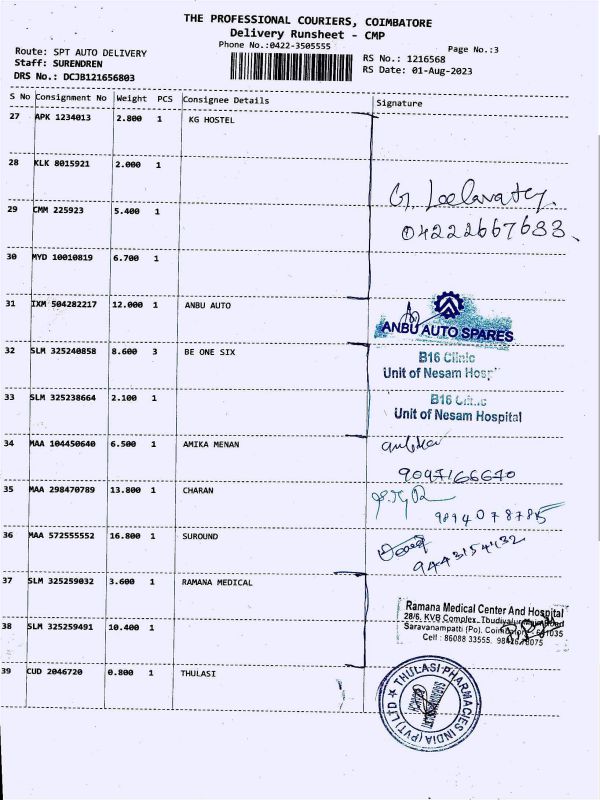 THE PROFESSIONAL COURIERS, COIMBATORE
Delivery Runsheet - CMP
Phone No.:0422-3505555
Page No.:3
Route: SPT AUTO DELIVERY
Staff: SURENDREN
DRS No.: DCJB121656803
RS No.: 1216568
RS Date: 01-Aug-2023
S No Consignment No Weight PCS Consignee Details Signature
27 APK 1234013 2.800 1 KG HOSTEL
28 KLK 8015921 2.000 1
G. Leelavathy.
29 CMM 225923 5.400 1
04222667683
30 MYD 10010819 6.700 1
31 IXM 504282217 12.000 1 ANBU AUTO
ANBU AUTO SPARES
32 SLM 325240858 8.600 3 BE ONE SIX
B16 Clinic
Unit of Nesam Hosp
33 SLM 325238664 2.100 1
B16
Unit of Nesam Hospital
34 MAA 104450640 6.500 1 AMIKA MENAN
35 MAA 298470789 13.800 1 CHARAN
36 MAA 572555552 16.800 1 SUROUND
9443154432
37 SLM 325259032 3.600 1 RAMANA MEDICAL
Ramana Medical Center And Hospital
28/6, KVB Complex,
Saravanampatti (Po),
Cell : 86088 33555.
38 SLM 325259491 10.400 1
39 CUD 2046720 0.800 1 THULASI
THULASI PHARMACIES INDIA (PVT) LTD